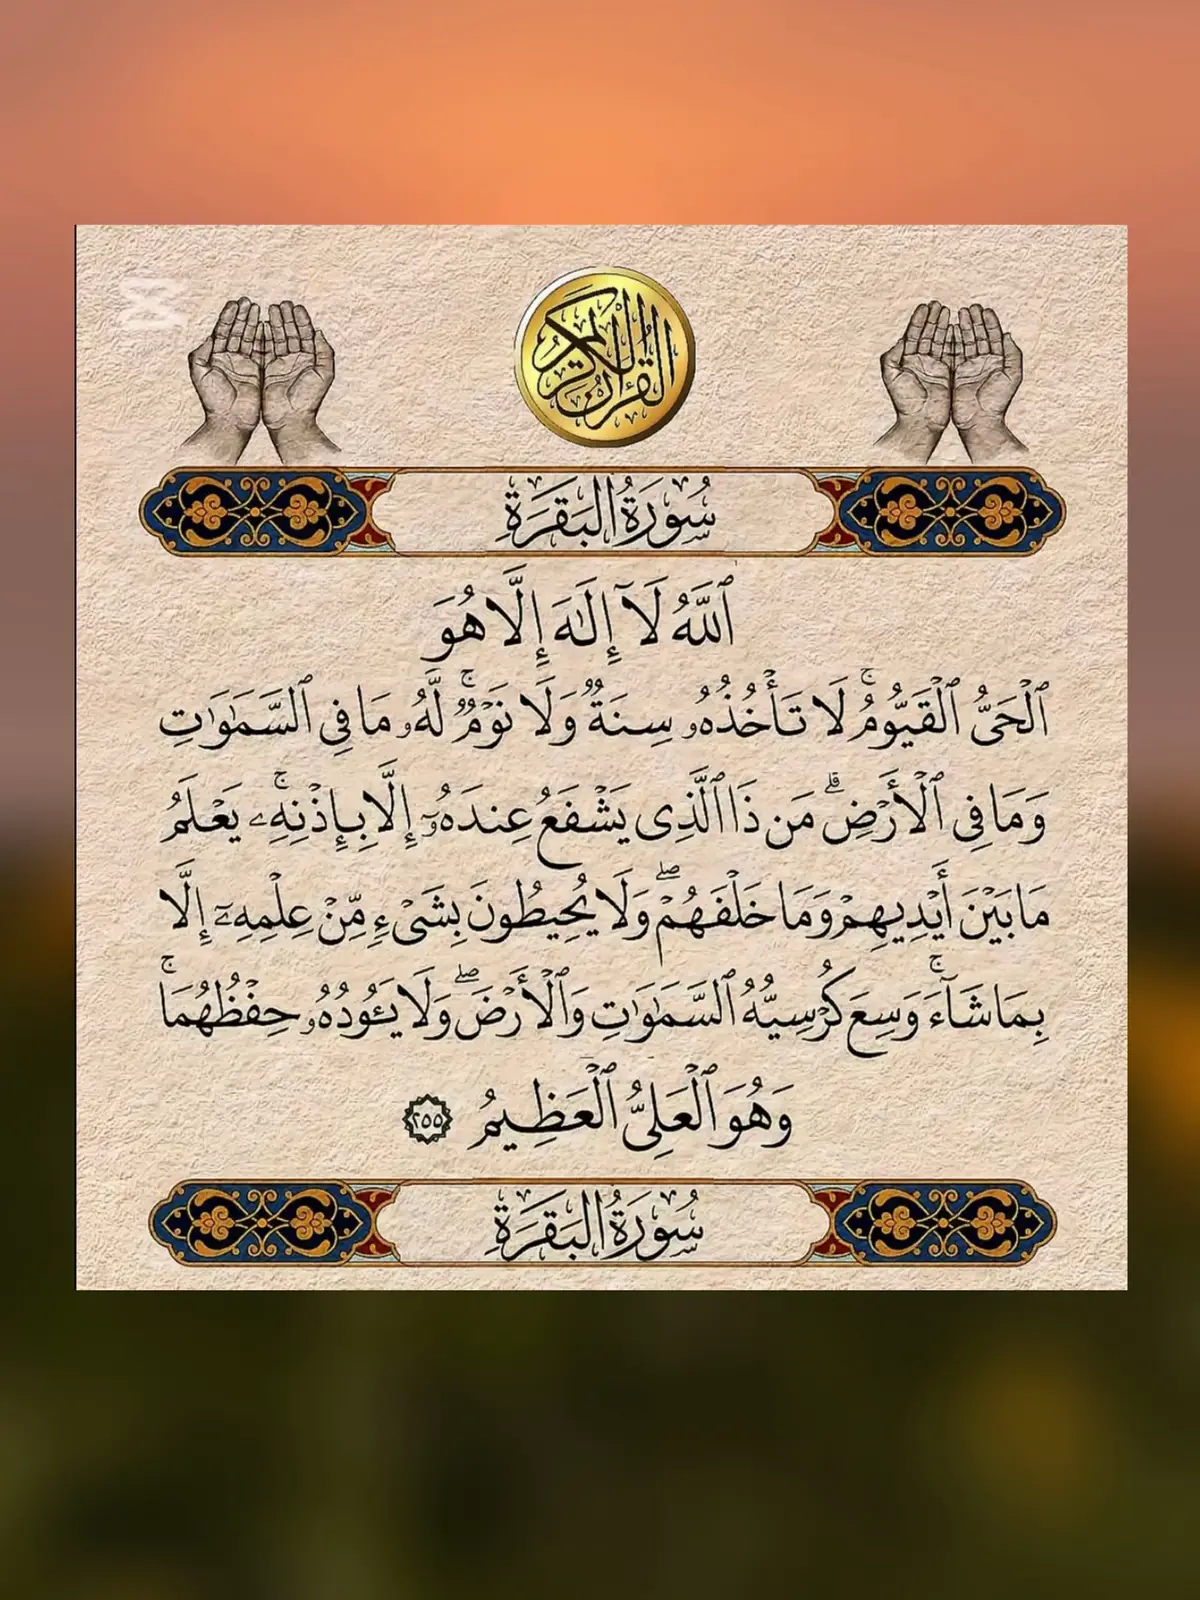 القرآن الكريم
سُورَةُ البَقَرَةِ
ٱللَّهُ لَآ إِلَٰهَ إِلَّا هُوَ
ٱلْحَىُّ ٱلْقَيُّومُ ۚ لَا تَأْخُذُهُۥ سِنَةٌ وَلَا نَوْمٌ ۚ لَّهُۥ مَا فِى ٱلسَّمَٰوَٰتِ
وَمَا فِى ٱلْأَرْضِ ۗ مَن ذَا ٱلَّذِى يَشْفَعُ عِندَهُۥٓ إِلَّا بِإِذْنِهِۦ ۚ يَعْلَمُ
مَا بَيْنَ أَيْدِيهِمْ وَمَا خَلْفَهُمْ ۖ وَلَا يُحِيطُونَ بِشَىْءٍ مِّنْ عِلْمِهِۦٓ إِلَّا
بِمَا شَآءَ ۚ وَسِعَ كُرْسِيُّهُ ٱلسَّمَٰوَٰتِ وَٱلْأَرْضَ ۖ وَلَا يَـُٔودُهُۥ حِفْظُهُمَا ۚ
وَهُوَ ٱلْعَلِىُّ ٱلْعَظِيمُ ٢٥٥
سُورَةُ البَقَرَةِ